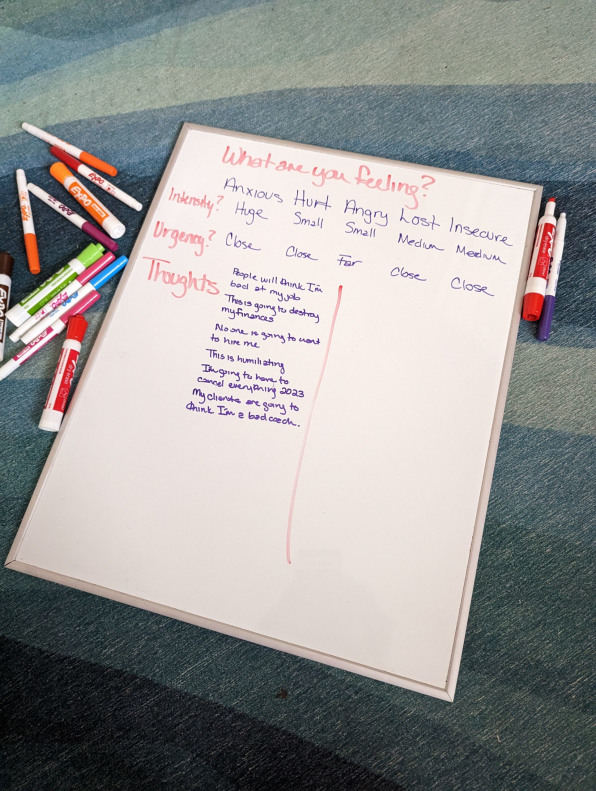 What are you feeling?
Anxious Hurt Angry Lost Insecure
Intensity? Huge Small Small Medium Medium
Urgency? Close Close Far Close Close
Thoughts
People will think I'm
bad at my job
This is going to destroy
my finances
No one is going to want
to hire me
This is humiliating
I'm going to have to
cancel everything 2023
My clients are going to
think I'm a bad coach.
EXPO
EXPO
EXPO
EXPO